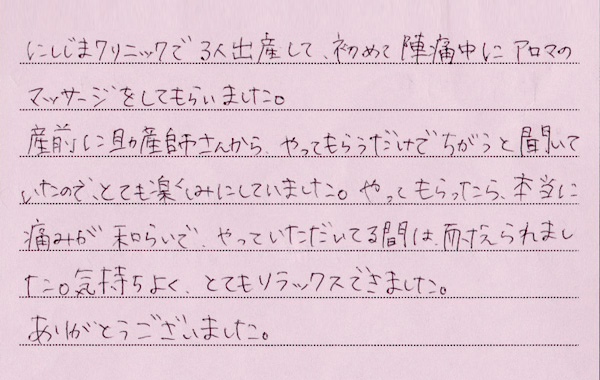 にしじまクリニックで3人出産して、初めて陣痛中にアロマの
マッサージをしてもらいました。
産前に助産師さんから、やってもらうだけでちがうと聞いて
いたので、とても楽しみにしていました。やってもらったら、本当に
痛みが和らいで、やっていただいてる間は、耐えられまし
た。気持ちよく、とてもリラックスできました。
ありがとうございました。